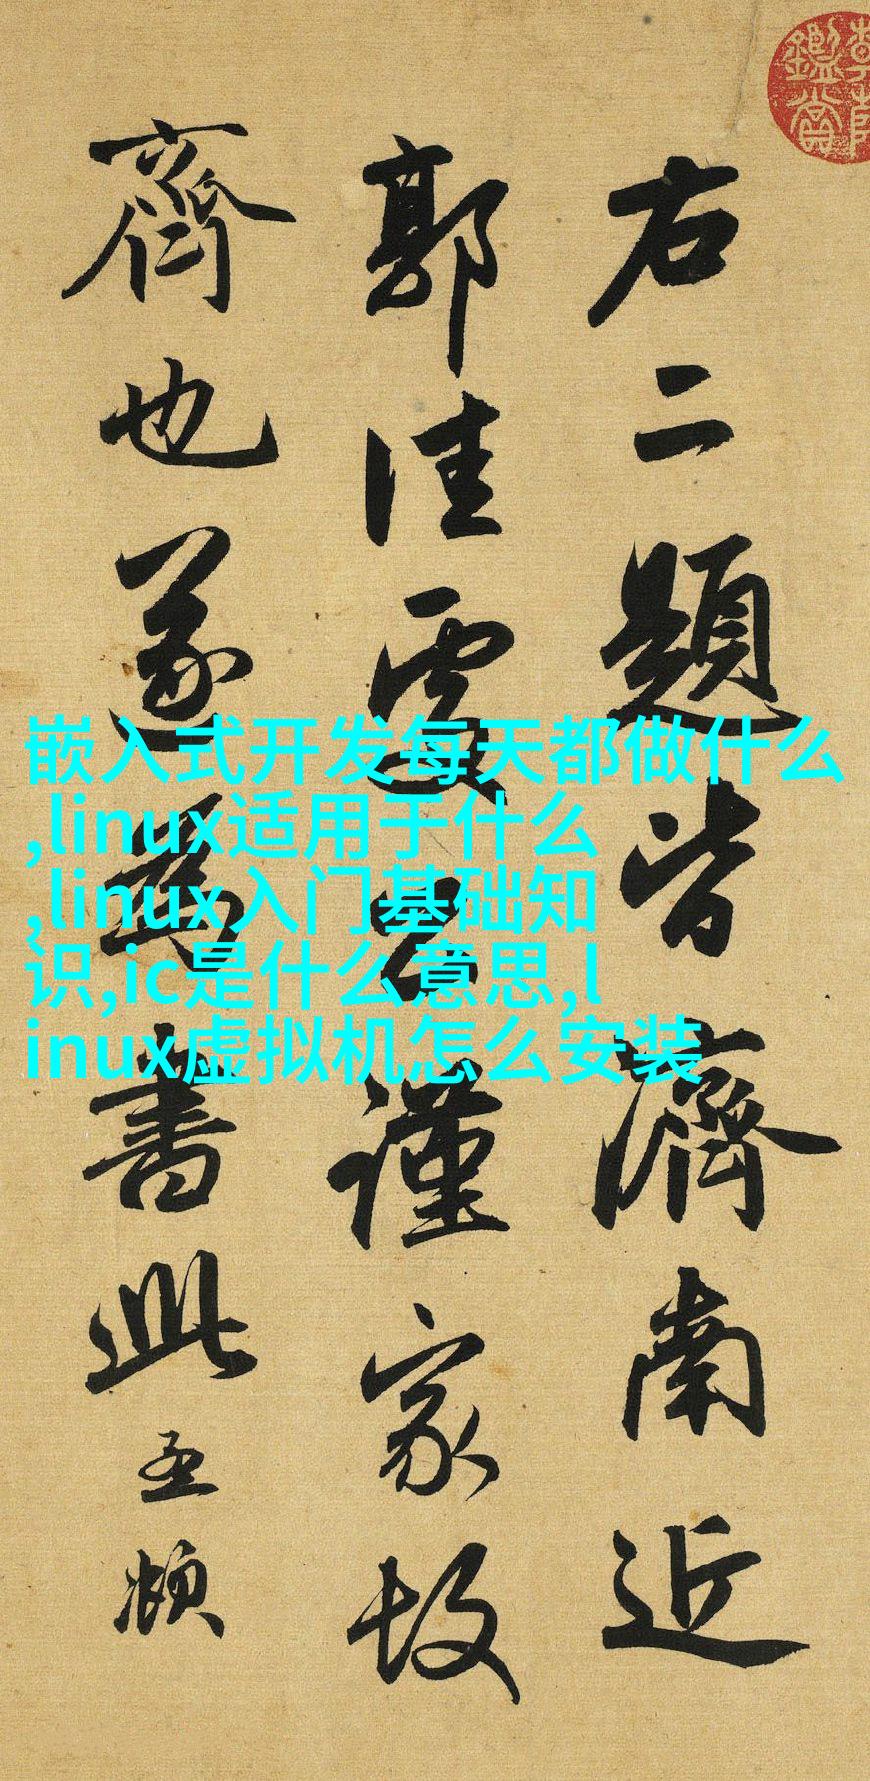 右二題皆濟南近
郭佳處公謹家故
齊也遂為書此孟頫
鑑賞
嵌入式开发每天都做什么
,linux适用于什么
,linux入门基础知
识,ic是什么意思,l
inux虚拟机怎么安装